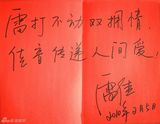 雷打不动双拥情
佳音传递人间爱
雷佳
2010年2月5日